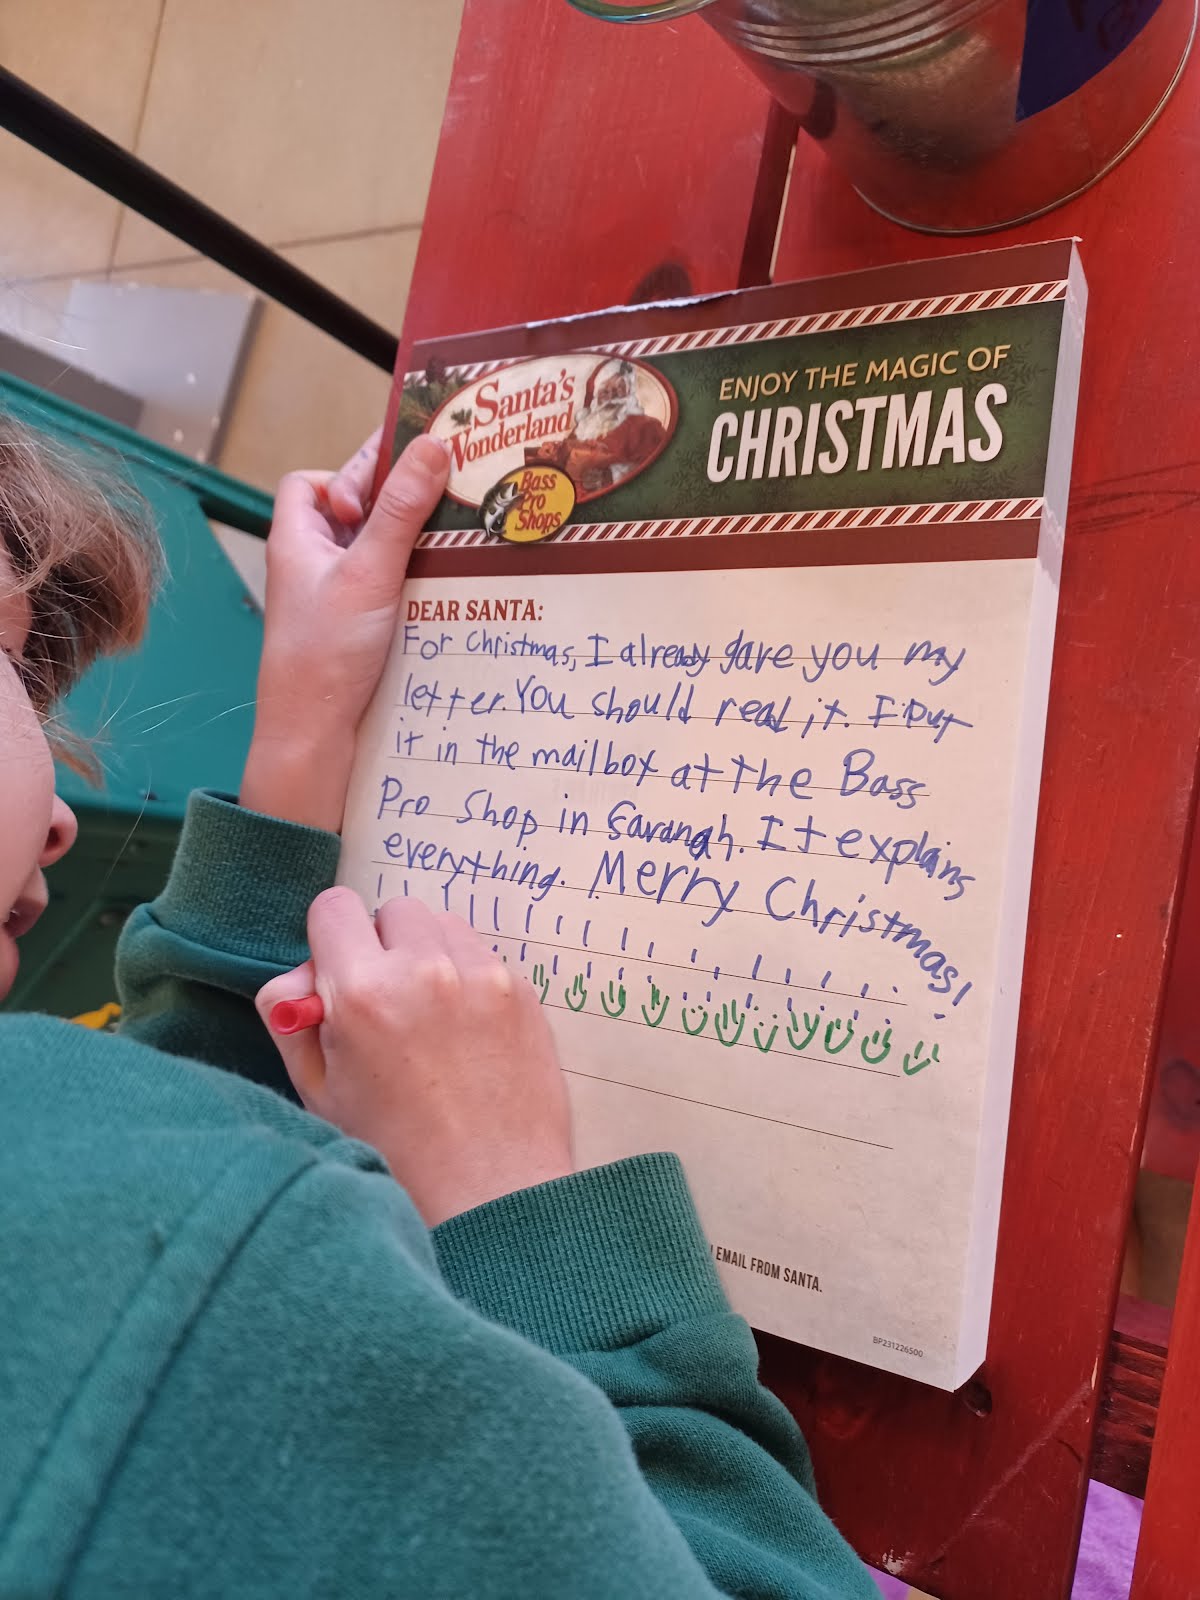 Santa's
Wonderland
Bass
Pro
Shops
ENJOY THE MAGIC OF
CHRISTMAS
DEAR SANTA:
For Christmas, I already gave you my
letter. You should read it. I put
it in the mailbox at the Bass
Pro Shop in Savanah. It explains
everything. Merry Christmas!
EMAIL FROM SANTA.
BP231226500